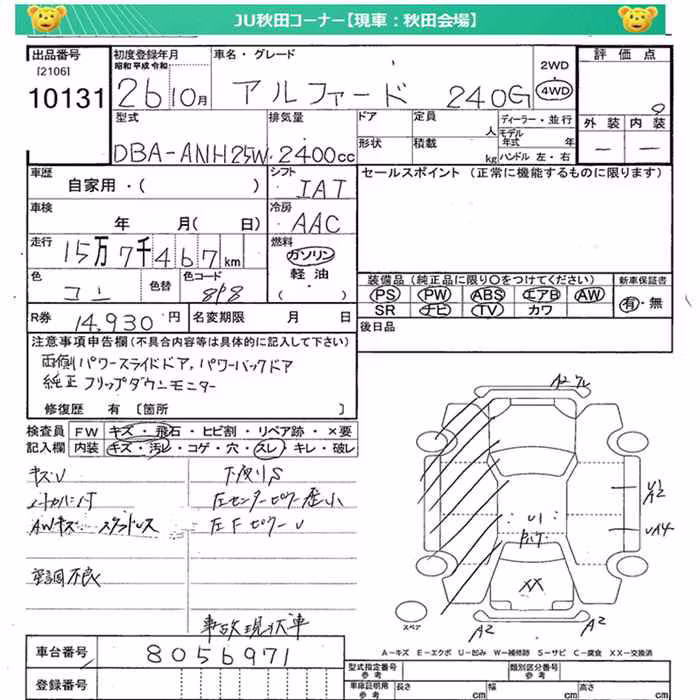 JU秋田コーナー【現車：秋田会場】
出品番号
[2106]
10131
初度登録年月
昭和 平成 令和
26 10月
車名・グレード
アルファード 240G
2WD
4WD
評価点
外装 内装
ー ー
型式
DBA-ANH25W
排気量
2400cc
ドア
形状
定員
人
積載
kg
ディーラー・並行
モデル
年式 年
ハンドル 左・右
車歴
自家用・( )
シフト
IAT
セールスポイント (正常に機能するものに限ります)
車検
年 月( 日)
冷房
AAC
走行
15万7千467km
燃料
ガソリン
軽油
( )
色
コン
色替
色コード
8P8
装備品 (純正品に限り〇をつけてください)
PS PW ABS エアB AW
SR ナビ TV カワ
新車保証書
有・無
R券
14,930円
名変期限 月 日
後日品
注意事項申告欄(不具合内容等は具体的に記入して下さい)
両側パワースライドドア、パワーバックドア
純正フリップダウンモニター
修復歴 有 [箇所 ]
検査員
記入欄
FW キズ・飛石・ヒビ割・リペア跡・×要
内装 キズ・汚レ・コゲ・穴・スレ・キレ・破レ
キズU
下廻りS
AWキズ スタッドレス
左センターピラー歪小
左Fピラー U
空調不良
事故現状車
A2
U1
A2
UA4
U1
XX
A2
A2
スペア
A-キズ E-エクボ U-凹み W-補修跡 S-サビ C-腐食 XX-交換済
車台番号
8056971
登録番号
型式指定番号
参考
類別区分番号
参考
車庫証明用
参考
長さ
cm
幅
cm
高さ
cm